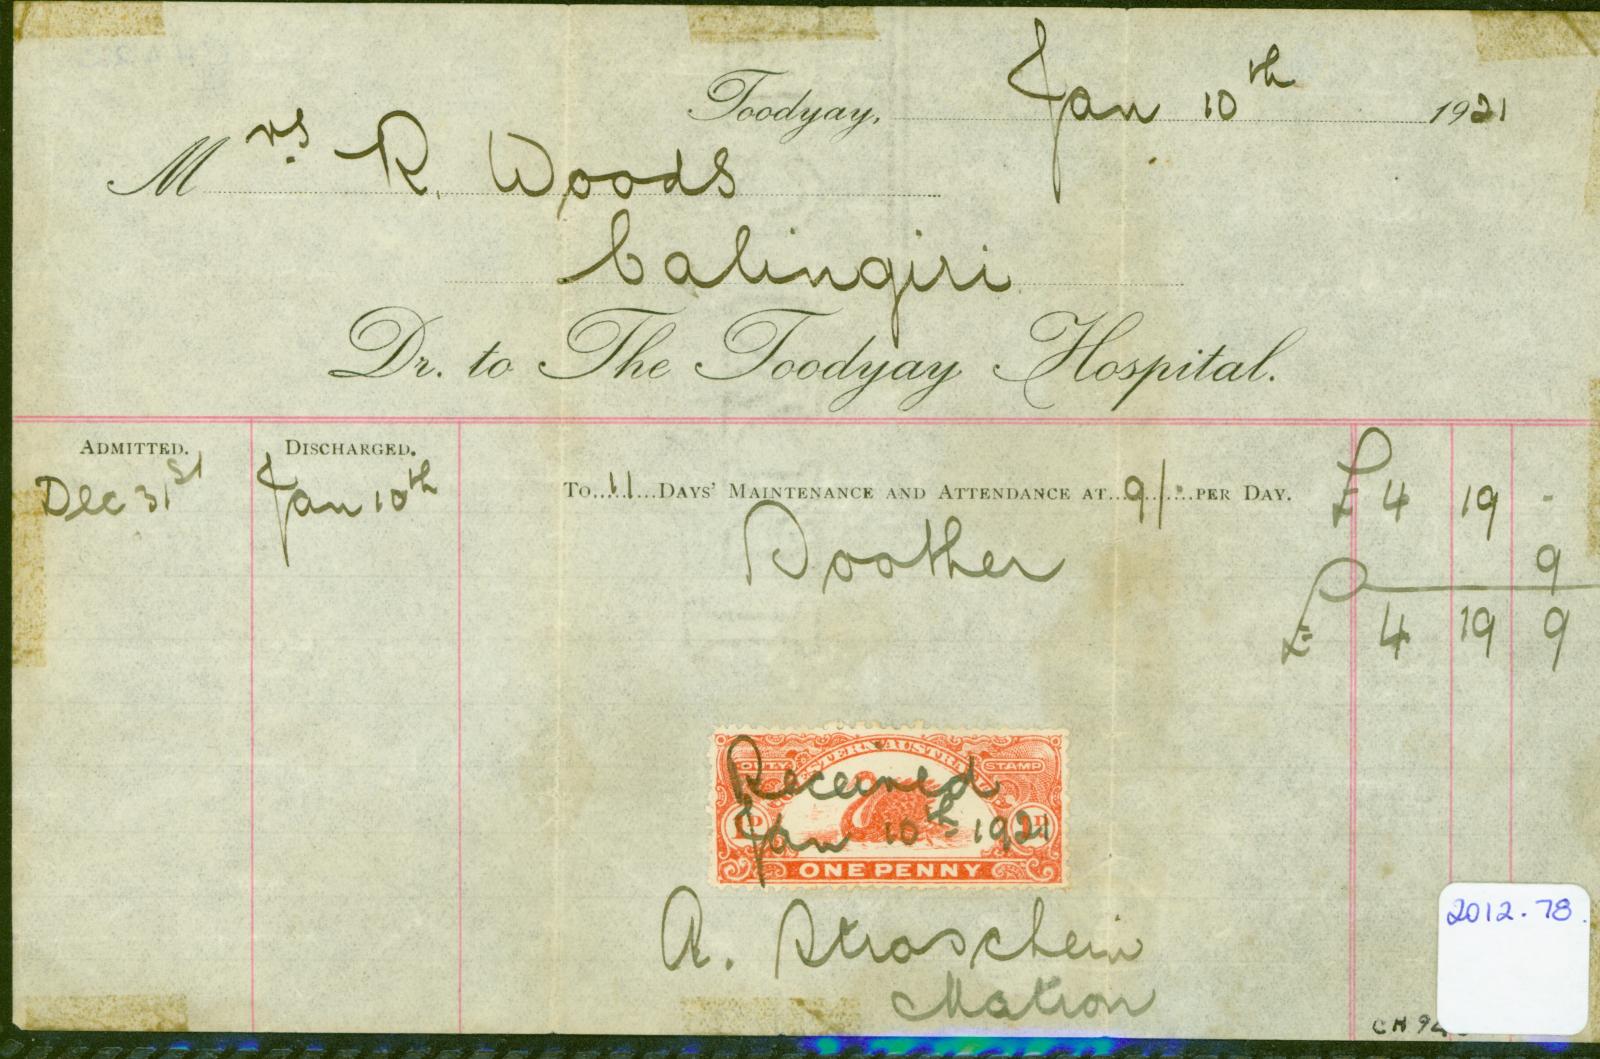 Toodyay, Jan 10th 1921
Mrs. R. Woods
Calingiri
Dr. to The Toodyay Hospital.
Admitted. Discharged.
Dec 31st Jan 10th To 11 Days' Maintenance and Attendance at 9/- per Day. £ 4 19 -
Soother 9
£ 4 19 9
WESTERN AUSTRALIA
DUTY STAMP
Received
1D 1D
Jan 10th 1921
ONE PENNY
A. Straschein
Matron
2012.78.
CH 94